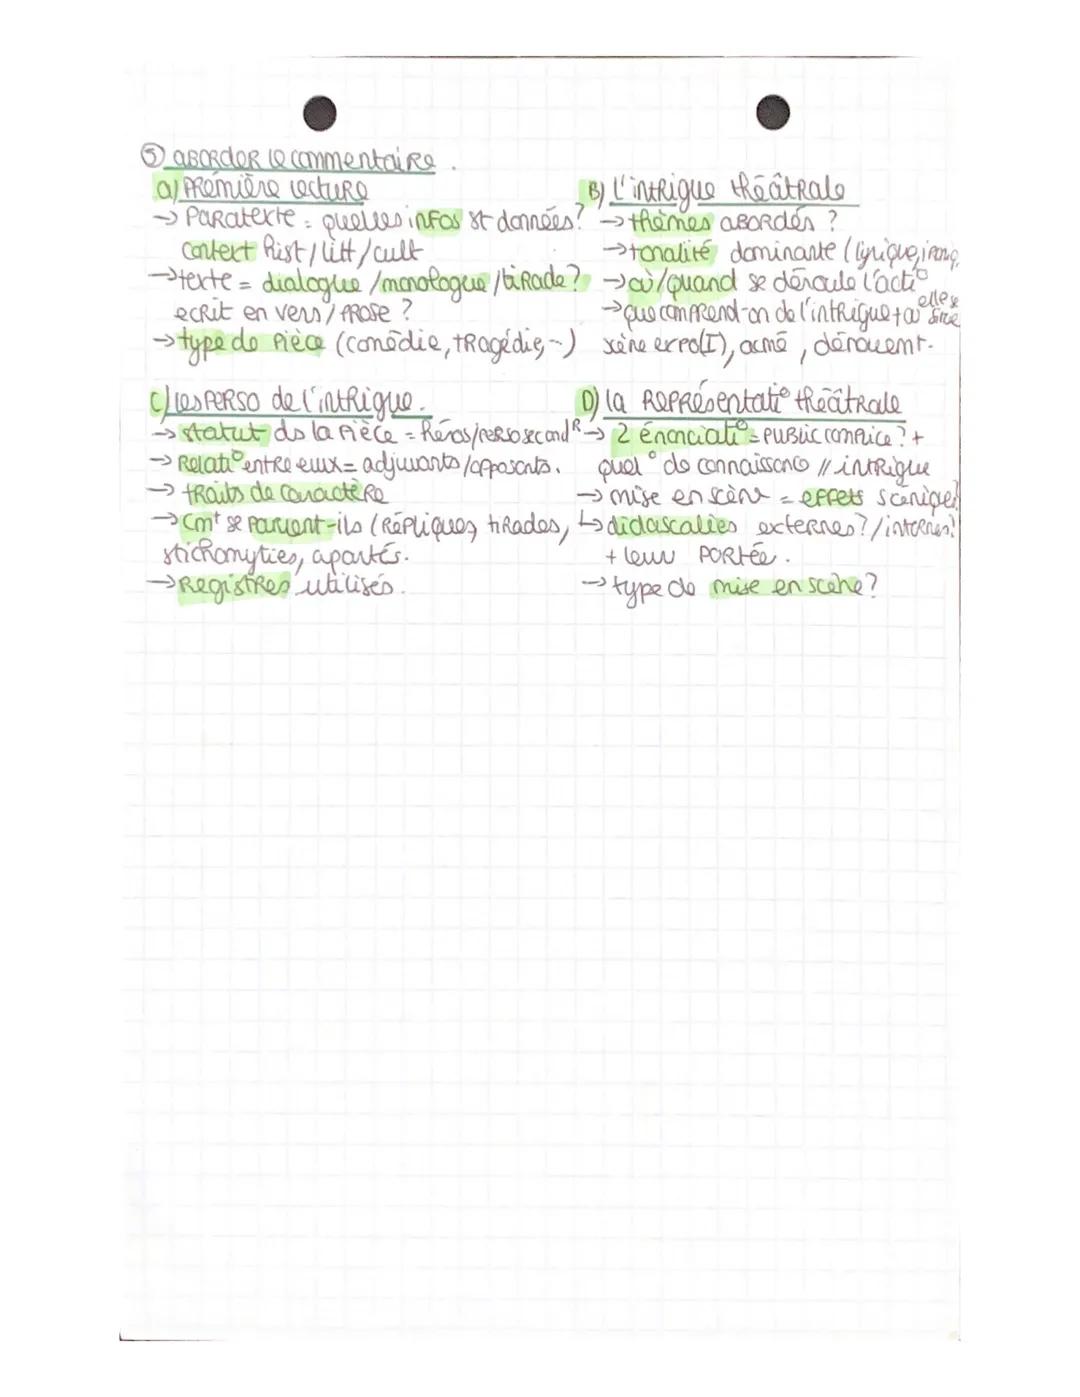 ⑤ aborder le commentaire.
a) Première lecture
→ Paratexte = quelles infos st données?
context hist/litt/cult
→ texte = dialogue/monologue/tirade?
ecrit en vers/prose ?
→ type de pièce (comédie, tragédie, ~)
B) L'intrigue théâtrale
→ thèmes abordés ?
→ tonalité dominante (lyrique, ironiq
→ où/quand se déroule l'acti°
→ que comprend-on de l'intrigue + où elle se situe
scène expo(I), acmé, dénouemt.
C) les perso de l'intrigue.
→ statut ds la pièce = héros/perso secondR
→ Relati° entre eux = adjuvants/opposants.
→ traits de caractère
→ Cmt se parlent-ils (Répliques, tirades,
stichomyties, apartés.
→ Registres utilisés.
D) la représentati° théâtrale
→ 2 énonciati° = public complice ? +
quel ° de connaissance // intrigue
→ mise en scène = effets scéniques?
↳ didascalies externes?/internes?
+ leur portée.
→ type de mise en scène?